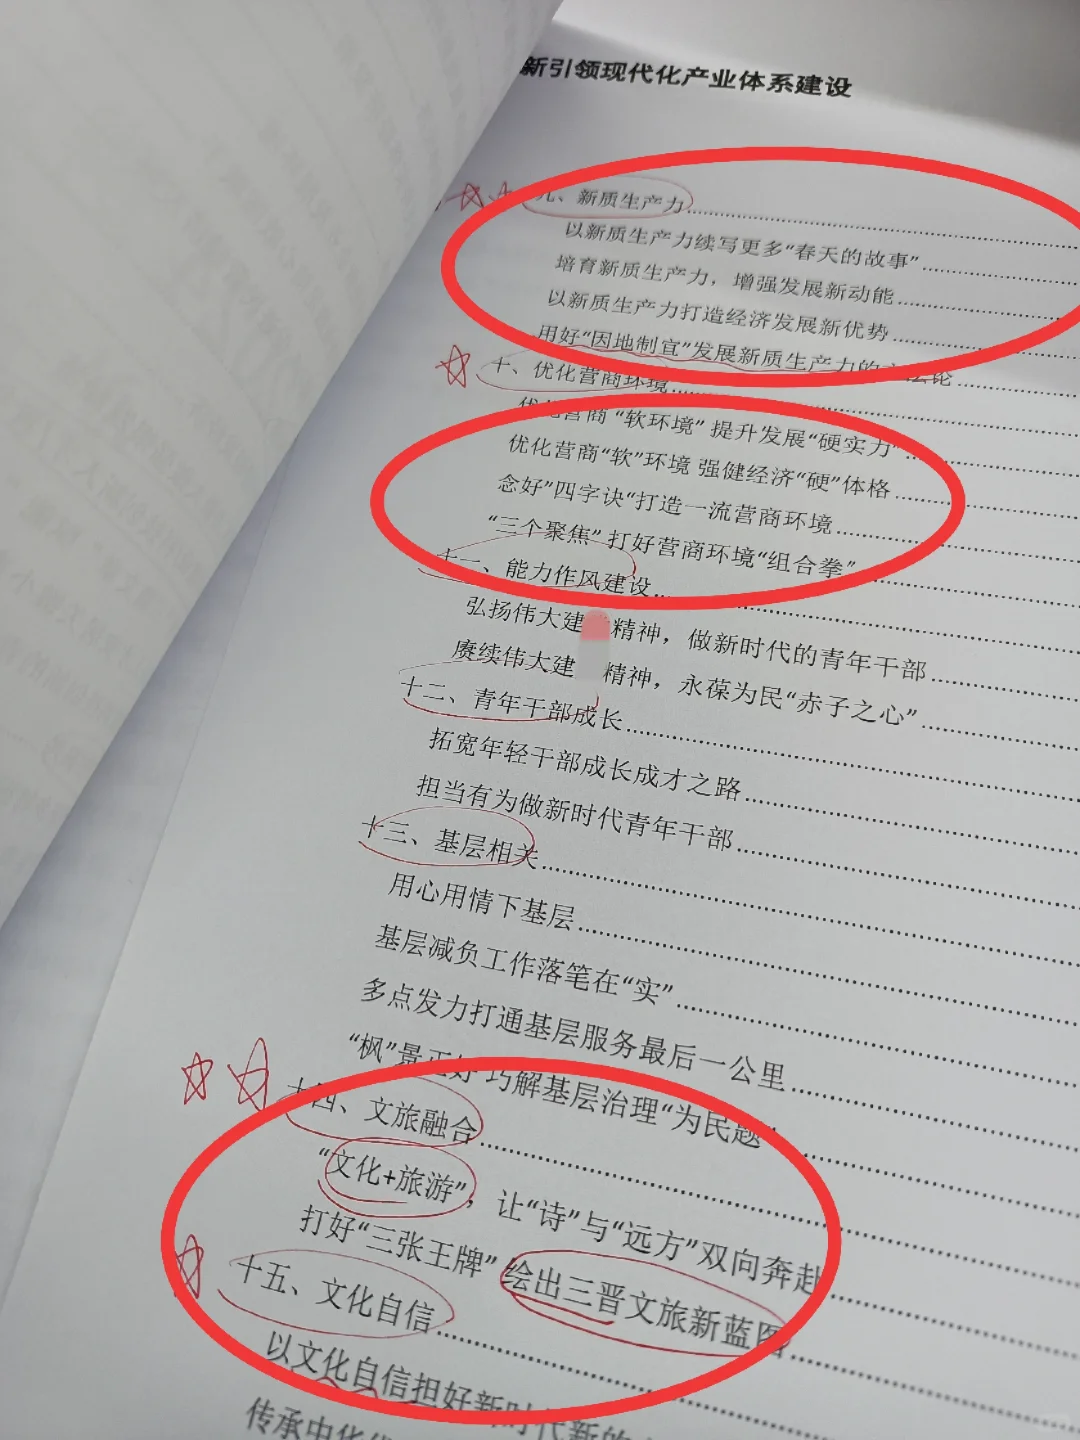 新引领现代化产业体系建设
九、新质生产力
以新质生产力续写更多“春天的故事”
培育新质生产力，增强发展新动能
以新质生产力打造经济发展新优势
用好“因地制宜”发展新质生产力的方法论
十、优化营商环境
优化营商“软环境” 提升发展“硬实力”
优化营商“软”环境 强健经济“硬”体格
念好“四字诀“打造一流营商环境
“三个聚焦” 打好营商环境“组合拳”
十一、能力作风建设
弘扬伟大建 精神，做新时代的青年干部
赓续伟大建 精神，永葆为民“赤子之心”
十二、青年干部成长
拓宽年轻干部成长成才之路
担当有为做新时代青年干部
十三、基层相关
用心用情下基层
基层减负工作落笔在“实”
多点发力打通基层服务最后一公里
“枫”景正好 巧解基层治理“为民题
十四、文旅融合
“文化+旅游”，让“诗”与“远方”双向奔赴
打好“三张王牌” 绘出三晋文旅新蓝图
十五、文化自信
以文化自信担好新时代新的
传承中华